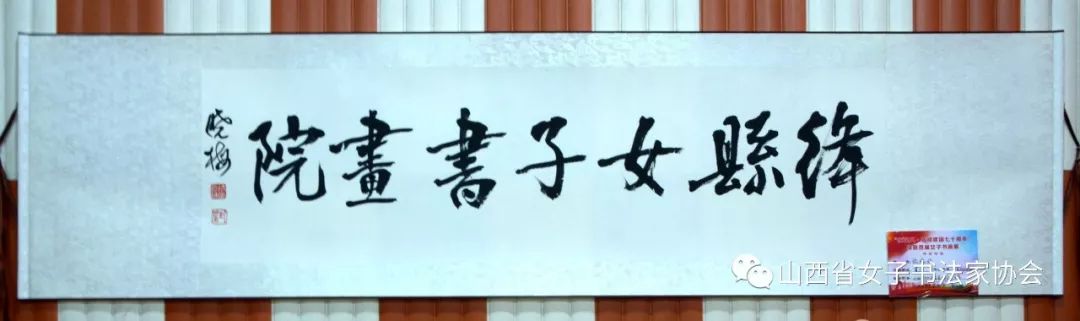 絳縣女子書畫院
曉梅
山西省女子书法家协会